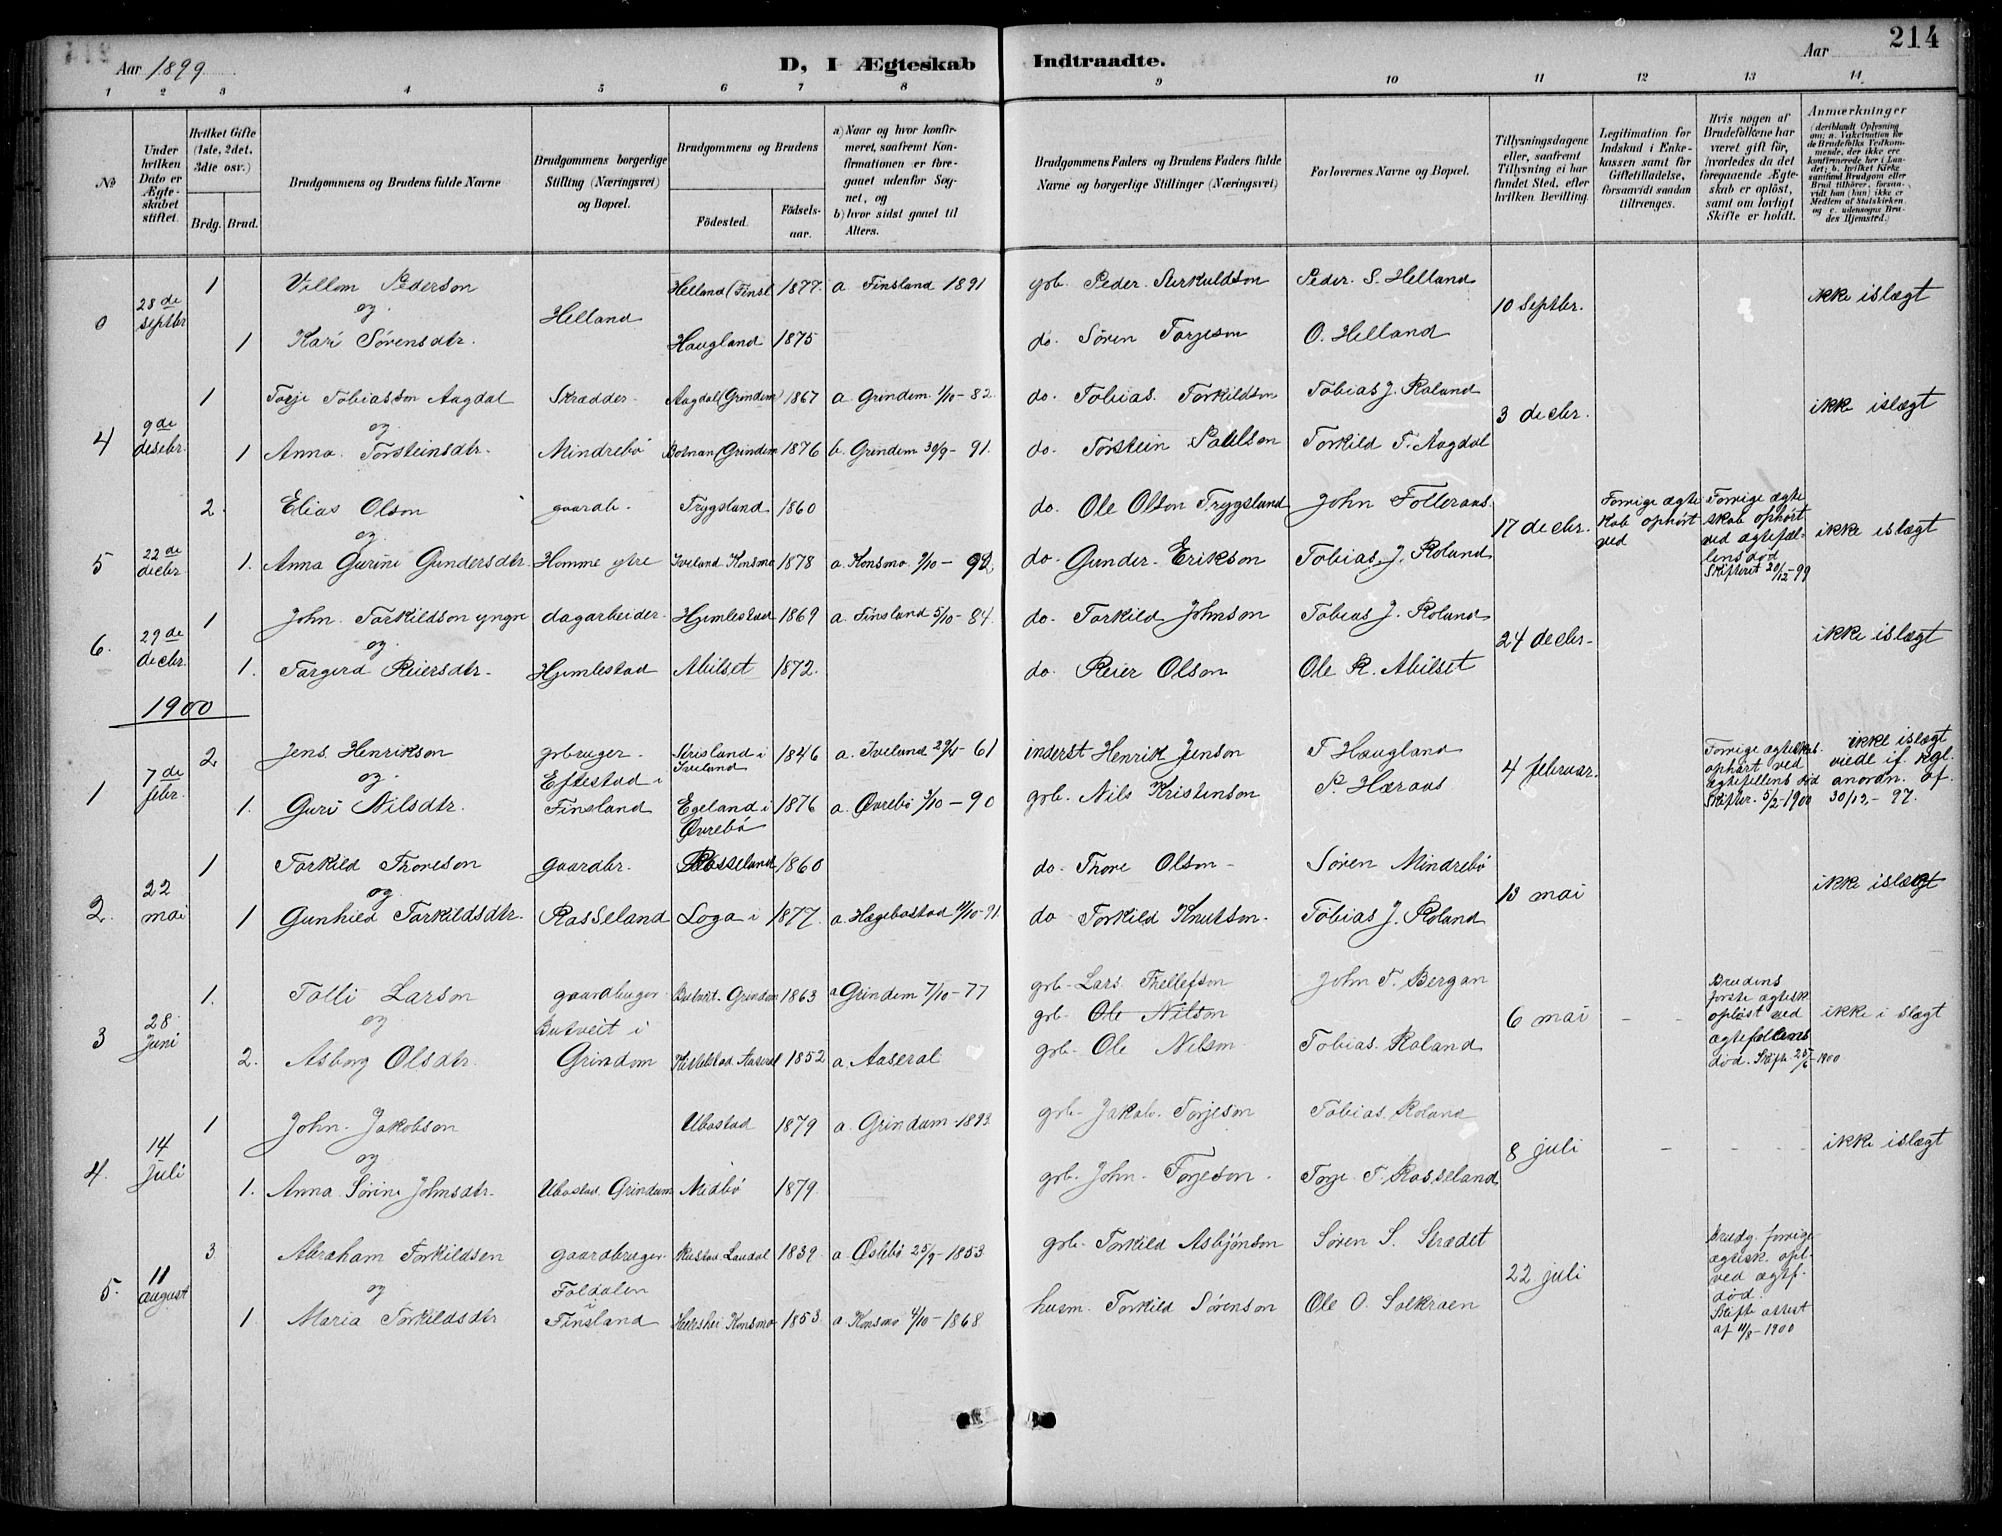 Aar 1899
D, I Ægteskab Indtraadte.
Aar 214
1 2 3 4 5 6 7 8 9 10 11 12 13 14
№
Under hvilken Dato er Ægteskabet stiftet.
Hvilket Gifte (1ste, 2det, 3die osv.)
Brdg. Brud.
Brudgommens og Brudens fulde Navne
Brudgommens borgerlige Stilling (Næringsvei) og Bopæl.
Brudgommens og Brudens
Fødested.
Fødselsaar.
a) Naar og hvor konfirmeret, saafremt Konfirmationen er foregaaet udenfor Sognet, og
b) hvor sidst gaaet til Alters.
Brudgommens Faders og Brudens Faders fulde Navne og borgerlige Stillinger (Næringsvei)
Forlovernes Navne og Bopæl.
Tillysningsdagene eller, saafremt Tillysning ei har fundet Sted, efter hvilken Bevilling.
Legitimation for Indskud i Enkekassen samt for Giftetilladelse, forsaavidt saadan tiltrænges.
Hvis nogen af Brudefolkene har været gift før, hvorledes da det foregaaende Ægteskab er opløst, samt om lovligt Skifte er holdt.
Anmærkninger
(deriblandt Oplysning om: a. Vakcination for de Brudefolks Vedkommende, der ikke ere konfirmerede her i Landet; b. hvilket Kirkesamfund Brudgom eller Brud tilhører, forsaavidt han (hun) ikke er Medlem af Statskirken og c. udensogns Brudes Hjemsted.)
28de septbr 1 Villom Pederson Helland (Finsl 1877. a. Finsland 1891 grb. Peder Peder. S. Helland 10 septbr. ikke islægt
og Helland
1 Kari Sørensdtr. Haugland 1875 do. Søren Torjeson O. Helland
4 9de desebr. 1 Torje Tobiasson Aagdal Skrædder. Aagdal (Grindem) 1867 a. Grindem 1/10 - 82. do. Tobias. Torkildson Tobias J. Roland 3 decbr. ikke islægt
og
1 Anna. Torsteinsdtr. Mindrebø (Grindem 1876 b. Grindem 30/9 - 91. do. Torstein Paulson Torkild T. Aagdal
5 22de decbr. 2. Elias Olson gaardb. Trygsland 1860 do. Ole Olson Trygsland John Folleraas 17 decbr. Forrige ægtekab ophørt ved Forrige ægteskab ophørt ved ægtefællens død Skifteret 20/12-99 ikke islægt
og
1. Anna Gurine Gundersdtr. Homme ytre Iveland Konsmo 1878 a. Konsmo 9/10 - 92 do. Gunder. Erikson Tobias J. Roland
6. 29de decbr. 1 John. Torkildson yngre dagarbeider. Hjemlestad 1869 a. Finsland 5/10 - 84. do. Torkild Johnson Tobias J. Roland 24 decbr. ikke islægt
og
1. Targerd Reiersdtr. Hjemlestad Abilset 1872. do. Reier Olson Ole R. Abilset
1900
1 7de febr. 2 Jens. Henrikson grbruger. i Iveland 1846 a. Iveland 29/4 - 61 inderst Henrik Jenson T. Haugland 4 februar. Forrige ægteskab ophørt ved ægtefellens død Skifter. 5/2-1900 ikke islægt viede if. kgl. anordn. af 30/12 - 97.
og Eftestad i
1. Guri Nilsdtr. Finsland Egeland i Øvrebø 1876 a. Øvrebø 3/10 - 90 grb. Nils Kristenson P. Høraas
2. 22 mai 1 Torkild Thoreson gaardbr. Rosseland 1860 do. Thore Olson Søren Mindrebø 13 mai ikke islægt
og
1 Gunhild Torkildsdtr. Rosseland Loga i 1877. a. Hægebostad 11/10 - 91. do Torkild Knutson. Tobias J. Roland
3 28 Juni 1. Tolli Larson gaardbruger Butveit. Grindem 1863 a Grindem 7/10 - 77 grb. Lars Thellefson John T. Bergan 6 mai - - Brudens første ægtesk. opløst ved ægtefællens død. Skifte 25/6 - 1900 ikke i slægt
og Butveit i grb. Ole Nilson
2. Asborg Olsdtr. Grindem Aaseral 1852 a. Aaseral grb. Ole Nilson Tobias. Roland
4. 14 juli 1 John. Jakobson Ubostad 1879 a. Grindum - 1893 grb. Jakob. Torjeson Tobias. Roland 8 juli - - - ikke islægt
og
1. Anna Sørine Johnsdtr. Ubostad Grindum Nedbø 1879. grb. John. Torjeson. Torje T. Rosseland
5. 11 august 3 Abraham Torkildsen gaardbruger. Laudal 1839. a. Øslebø 25/9 - 1853 grb. Torkild Asbjønson Søren S. Strædet 22 juli Brudg. forrige ægtesk. opl. ved ægtf. død. Skifte attest af 11/8 - 1900
og Foldalen i
1. Maria Torkildsdtr Finsland Konsmo 1853 a Konsmo 4/10 - 1868 husm. Torkild Sørenson Ole O. Solkraen